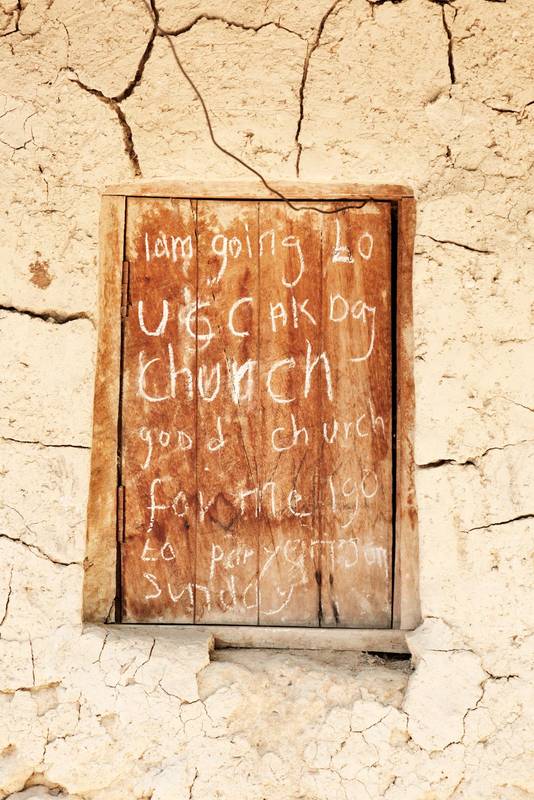 Iam going to
UGC AK Day
church
good church
for the I go
to
sunday